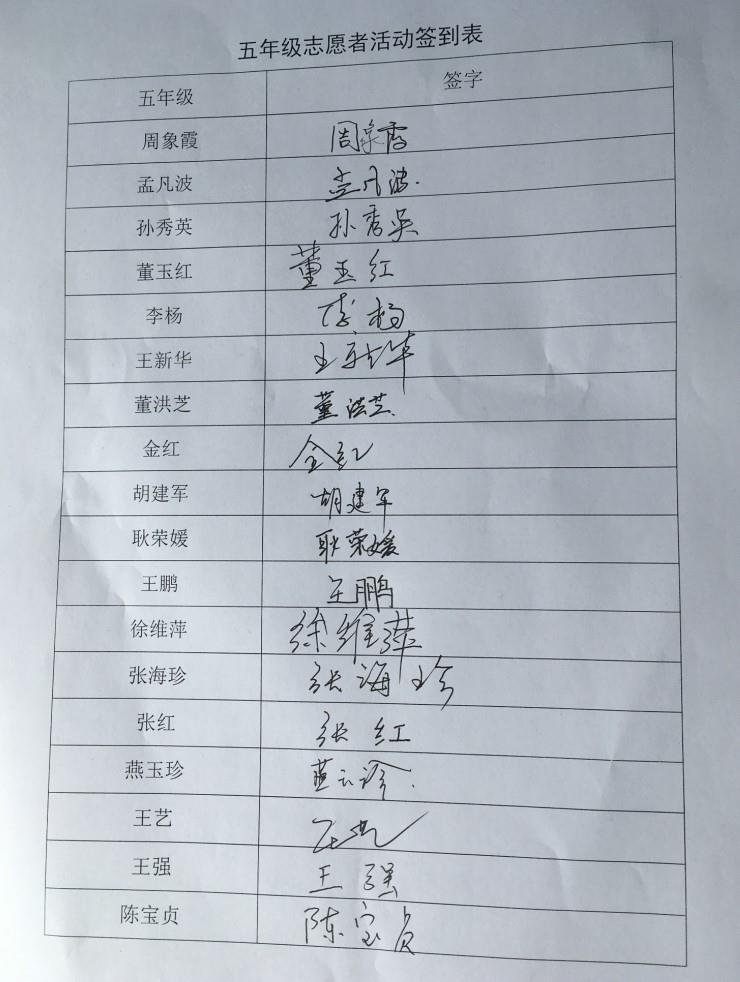 五年级志愿者活动签到表
五年级 签字
周象霞 周象霞
孟凡波 孟凡波
孙秀英 孙秀英
董玉红 董玉红
李杨 李杨
王新华 王新华
董洪芝 董洪芝
金红 金红
胡建军 胡建军
耿荣媛 耿荣媛
王鹏 王鹏
徐维萍 徐维萍
张海珍 张海珍
张红 张红
燕玉珍 燕玉珍
王艺 王艺
王强 王强
陈宝贞 陈宝贞